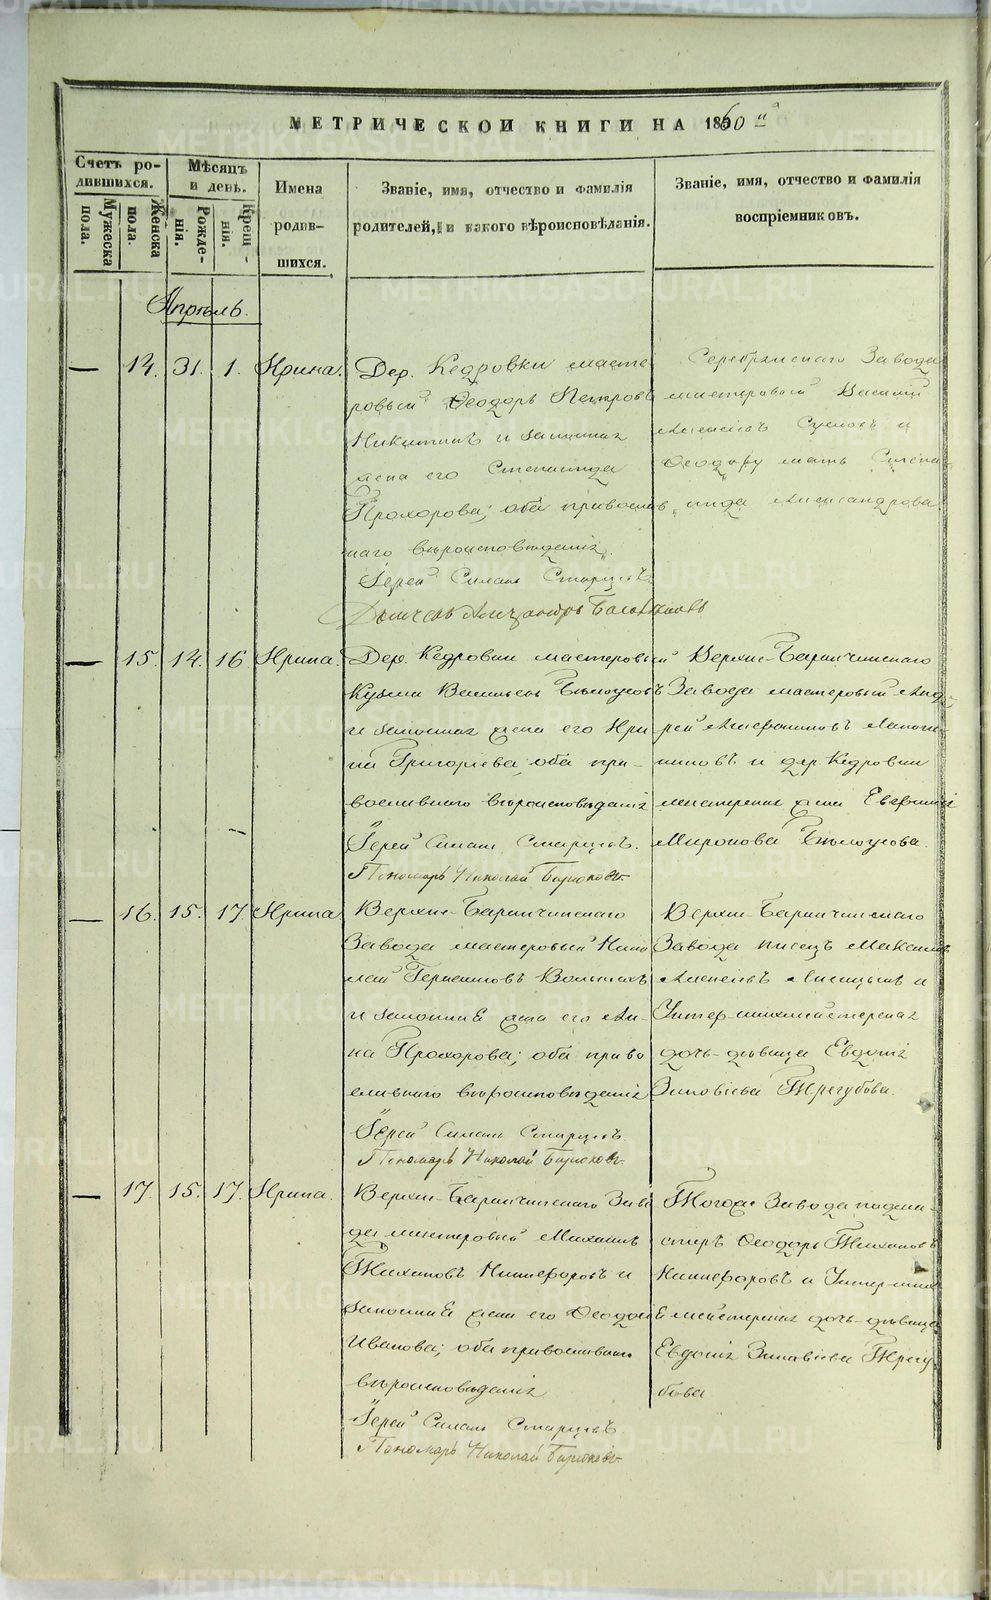 МЕТРИЧЕСКОЙ КНИГИ НА 1860й
Счетъ родившихся.
Мужеска пола.
Женска пола.
Мѣсяцъ и день.
Рожденія.
Крещенія.
Имена родившихся.
Званіе, имя, отчество и фамилія родителей, и какого вѣроисповѣданія.
Званіе, имя, отчество и фамилія воспріемниковъ.
Апрѣль.
— 14. 31. 1. Ирина.
Дер. Кедровки масте
ровый Ѳеодоръ Петровъ
Никитинъ и законная
жена его Степанида
Прохорова; оба правосла
наго вѣроисповѣданія.
Іерей Симеонъ Старцевъ
Дьячекъ Александръ
Серебрянскаго Завода
мастеровый Василій
Алексѣевъ и
мать Степа
нида Александрова.
— 15. 14. 16 Ирина.
Дер. Кедровки мастеровый
Кузма Васильевъ Бѣлоусовъ
и законная жена его Ири
на Григорьева, оба пра-
вославнаго вѣроисповѣданія
Іерей Симеонъ Старцевъ.
Пономарь Николай Бирюковъ.
Верхне-Баранчинскаго
Завода мастеровый Анд
рей
и дер. Кедровки
мастерская жена Евфимія
Миронова Бѣлоусова.
— 16. 15. 17. Ирина
Верхне-Баранчинскаго
Завода мастеровый Нико
лай
и законная жена его Ан-
на Прохорова; оба право
славнаго вѣроисповѣданія
Іерей Симеонъ Старцевъ.
Пономарь Николай Бирюковъ.
Верхне-Баранчинскаго
Завода писецъ Максимъ
Алексѣевъ и
Унтер-шихтмейстерская
дочь-дѣвица Евдокія
Зиновіева Трегубова.
— 17. 15. 17. Ирина.
Верхне-Баранчинскаго Заво
да мастеровый Михаилъ
Тихановъ Никифоровъ и
законная жена его Ѳеодосія
Иванова; оба православнаго
вѣроисповѣданія
Іерей Симеонъ Старцевъ.
Пономарь Николай Бирюковъ.
Тогоже Завода
Ѳеодоръ Тихановъ
Никифоровъ и Унтер-шихт
мейстерская дочь-дѣвица
Евдокія Зиновіева Трегу
бова
METRIKI.GASO-URAL.RU